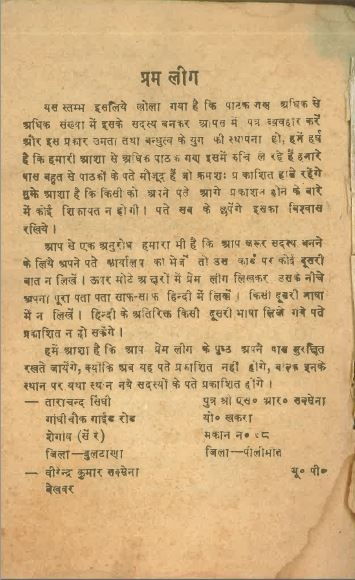 प्रम लीग
यस स्तम्भ इसलिये खोला गया है कि पाठक गण अधिक से
अधिक संख्या में इसके सदस्य बनकर आपस में पत्र व्यवहार करें
और इस प्रकार उमता तथा बन्धुत्व के युग की स्थापना हो, हमें हर्ष
है कि हमारी आशा से अधिक पाठक गण इसमें रुचि ले रहे हैं हमारे
पास बहुत से पाठकों के पते मौजूद हैं जो क्रमशः प्रकाशित होते रहेंगे
मुझे आशा है कि किसी को अपने पते आगे प्रकाशन होने के बारे
में कोई शिकायत न होगी। पते सब के छपेंगे इसका विश्वास
रखिये।
आप से एक अनुरोध हमारा भी है कि आप जरूर सदस्य बनने
के लिये अपने पते कार्यालय को भेजें तो उस कार्ड पर कोई दूसरी
बात न लिखें। ऊपर मोटे अक्षरों में प्रेम लीग लिखकर उसके नीचे
अपना पूरा पता पता साफ-साफ हिन्दी में लिखें। किसी दूसरी भाषा
में न लिखें। हिन्दी के अतिरिक्त किसी दूसरी भाषा लिखे गये पते
प्रकाशित न हो सकेंगे।
हमें आशा है कि आप प्रेम लीग के पृष्ठ अपने पास सुरक्षित
रखते जायेंगे, क्योंकि अब यह पते प्रकाशित नहीं होंगे, बल्कि इनके
स्थान पर यथा स्थान नये सदस्यों के पते प्रकाशित होंगे।
— ताराचन्द सिंधी पुत्र श्री एस० आर० सक्सेना
गांधी चौक गाईड रोड यो० खकरा
शेगांव (सें र) मकान न० ८८
जिला—बुलढाणा जिला—पीलीभीत
— वीरेन्द्र कुमार सक्सेना यू० पी०
बेखबर